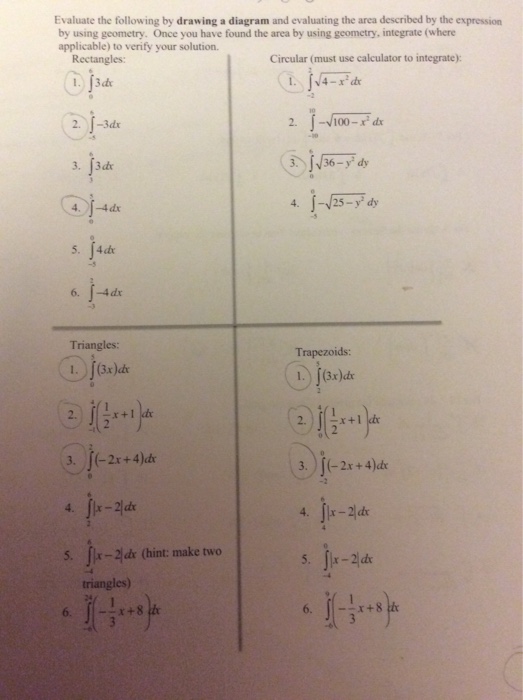 Evaluate the following by drawing a diagram and evaluating the area described by the expression
by using geometry. Once you have found the area by using geometry, integrate (where
applicable) to verify your solution.
Rectangles:
1. ∫3dx
2. ∫-3dx
3. ∫3dx
4. ∫-4dx
5. ∫4dx
6. ∫-4dx
Circular (must use calculator to integrate):
1. ∫_{-2}^{2} √(4-x²) dx
2. ∫_{-10}^{10} -√(100-x²) dx
3. ∫_{0}^{6} √(36-y²) dy
4. ∫_{-5}^{0} -√(25-y²) dy
Triangles:
1. ∫_{0}^{5} (3x)dx
2. ∫(1/2 x+1)dx
3. ∫_{0}^{2} (-2x+4)dx
4. ∫_{2}^{6} |x-2|dx
5. ∫_{-4}^{6} |x-2|dx (hint: make two
triangles)
6. ∫(-1/3 x+8)dx
Trapezoids:
1. ∫_{2}^{5} (3x)dx
2. ∫_{0}^{4} (1/2 x+1)dx
3. ∫_{-2}^{0} (-2x+4)dx
4. ∫_{4}^{6} |x-2|dx
5. ∫_{-4}^{0} |x-2|dx
6. ∫(-1/3 x+8)dx